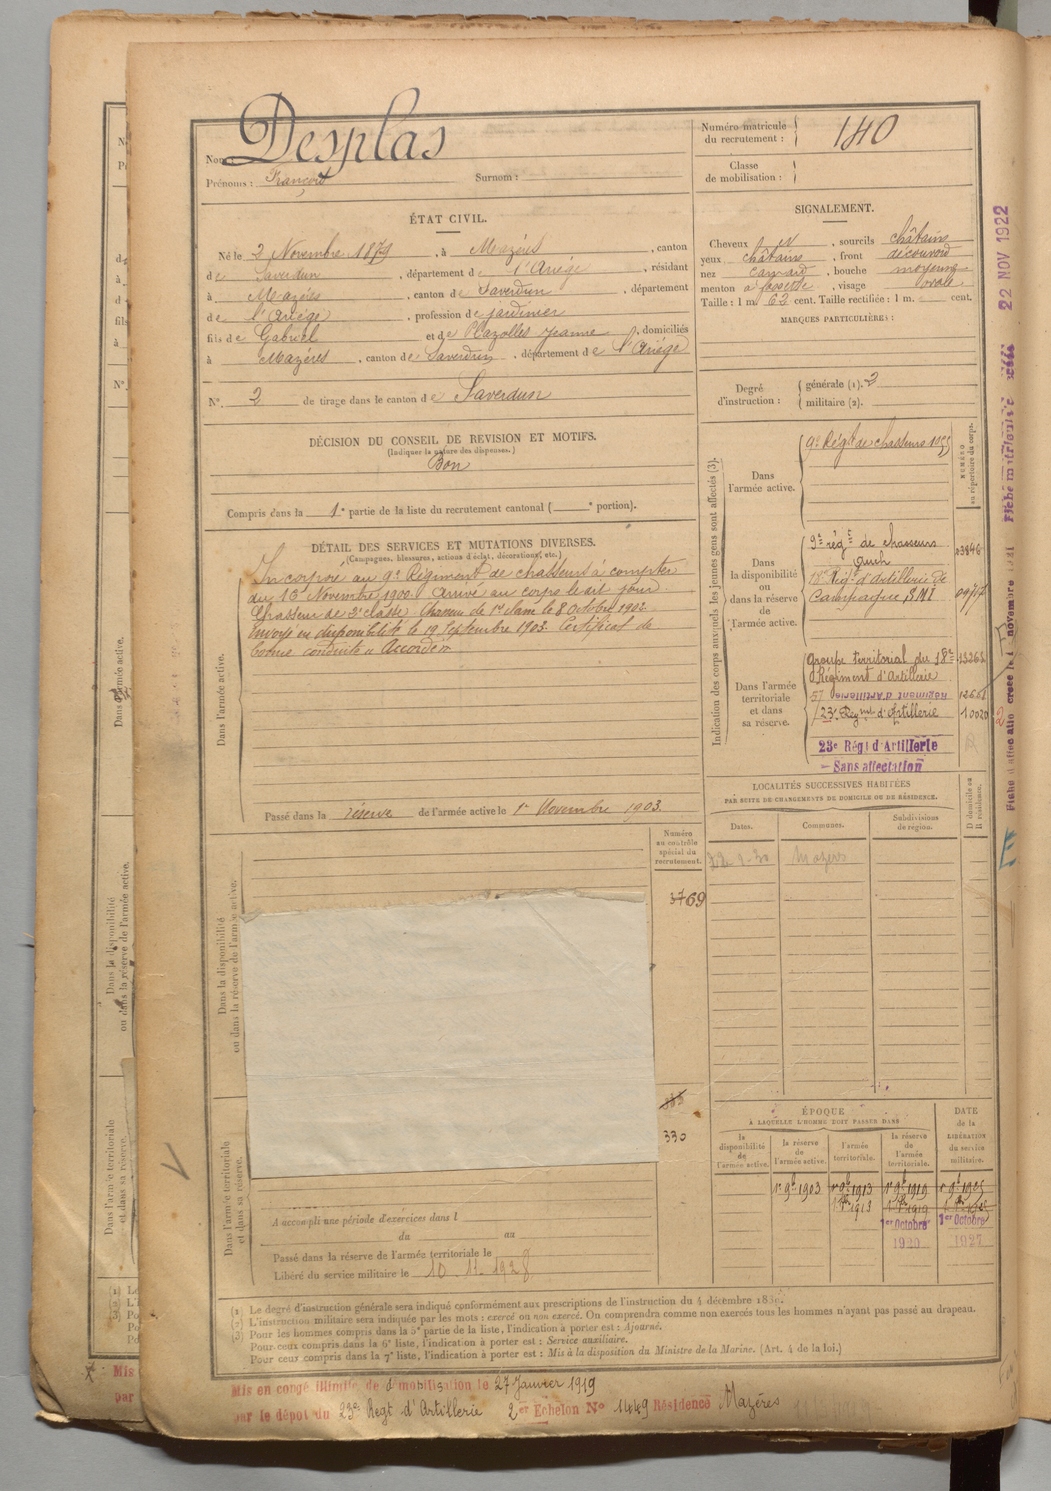 Nom : Desplas
Prénoms : François Surnom :
Numéro matricule du recrutement : 140
Classe de mobilisation :
ÉTAT CIVIL.
Né le 2 Novembre 1879, à Mazères, canton
de Saverdun, département de l'Ariège, résidant
à Mazères, canton de Saverdun, département
de l'Ariège, profession de jardinier
fils de Gabriel et de Plazolles Jeanne, domiciliés
à Mazères, canton de Saverdun, département de l'Ariège
N° 2 de tirage dans le canton de Saverdun
SIGNALEMENT.
Cheveux et, sourcils châtains
yeux châtains, front découvert
nez camard, bouche moyenne
menton à fossette, visage ovale
Taille : 1 m. 62 cent. Taille rectifiée : 1 m. cent.
MARQUES PARTICULIÈRES :
Degré d'instruction : générale (1). 2
militaire (2).
DÉCISION DU CONSEIL DE REVISION ET MOTIFS.
(Indiquer la nature des dispenses.)
Bon
Compris dans la 1e partie de la liste du recrutement cantonal ( e portion).
DÉTAIL DES SERVICES ET MUTATIONS DIVERSES.
(Campagnes, blessures, actions d'éclat, décorations, etc.)
Dans l'armée active.
Incorporé au 9e Régiment de chasseurs à compter
du 16 Novembre 1900 Arrivé au corps le dit jour
Chasseur de 2e classe Chasseur de 1e classe le 8 Octobre 1902
Envoyé en disponibilité le 19 Septembre 1903. Certificat de
bonne conduite Accordé
Passé dans la réserve de l'armée active le 1er Novembre 1903.
Numéro au contrôle spécial du recrutement.
3769
Dans la disponibilité ou dans la réserve de l'armée active.
330
Dans l'armée territoriale et dans sa réserve.
A accompli une période d'exercices dans l
du au
Passé dans la réserve de l'armée territoriale le
Libéré du service militaire le 10.11.1928
Indication des corps auxquels les jeunes gens sont affectés (3).
NUMÉRO au répertoire du corps.
Dans l'armée active.
9e Régt de chasseurs
Dans la disponibilité ou dans la réserve de l'armée active.
9e régt de chasseurs
Auch
18e Régt d'Artillerie de
Campagne, SMI
Dans l'armée territoriale et dans sa réserve.
Groupe territorial du 18e 13263
Régiment d'Artillerie
57 Régiment d'Artillerie
23e Regmt d'Artillerie 10020
23e Régt d'Artillerie
Sans affectation
LOCALITÉS SUCCESSIVES HABITÉES
PAR SUITE DE CHANGEMENTS DE DOMICILE OU DE RÉSIDENCE.
Dates. Communes. Subdivisions de région. D domicile ou R résidence.
Mazères
ÉPOQUE
À LAQUELLE L'HOMME DOIT PASSER DANS
DATE de la LIBÉRATION du service militaire.
la disponibilité de l'armée active. la réserve de l'armée active. l'armée territoriale. la réserve de l'armée territoriale.
1er 9bre 1903 1er 9bre 1913 1er 9bre 1919 1er 9bre 1925
1er Octobre 1er Octobre
22 NOV 1922
(1) Le degré d'instruction générale sera indiqué conformément aux prescriptions de l'instruction du 4 décembre
(2) L'instruction militaire sera indiquée par les mots : exercé ou non exercé. On comprendra comme non exercés tous les hommes n'ayant pas passé au drapeau.
(3) Pour les hommes compris dans la 5e partie de la liste, l'indication à porter est : Ajourné.
Pour ceux compris dans la 6e liste, l'indication à porter est : Service auxiliaire.
Pour ceux compris dans la 7e liste, l'indication à porter est : Mis à la disposition du Ministre de la Marine. (Art. 4 de la loi.)
Mis en congé illimité de démobilisation le 27 Janvier 1919
par le dépôt du 23e Regt d'Artillerie 2er Echelon N° 1449 Résidence Mazères